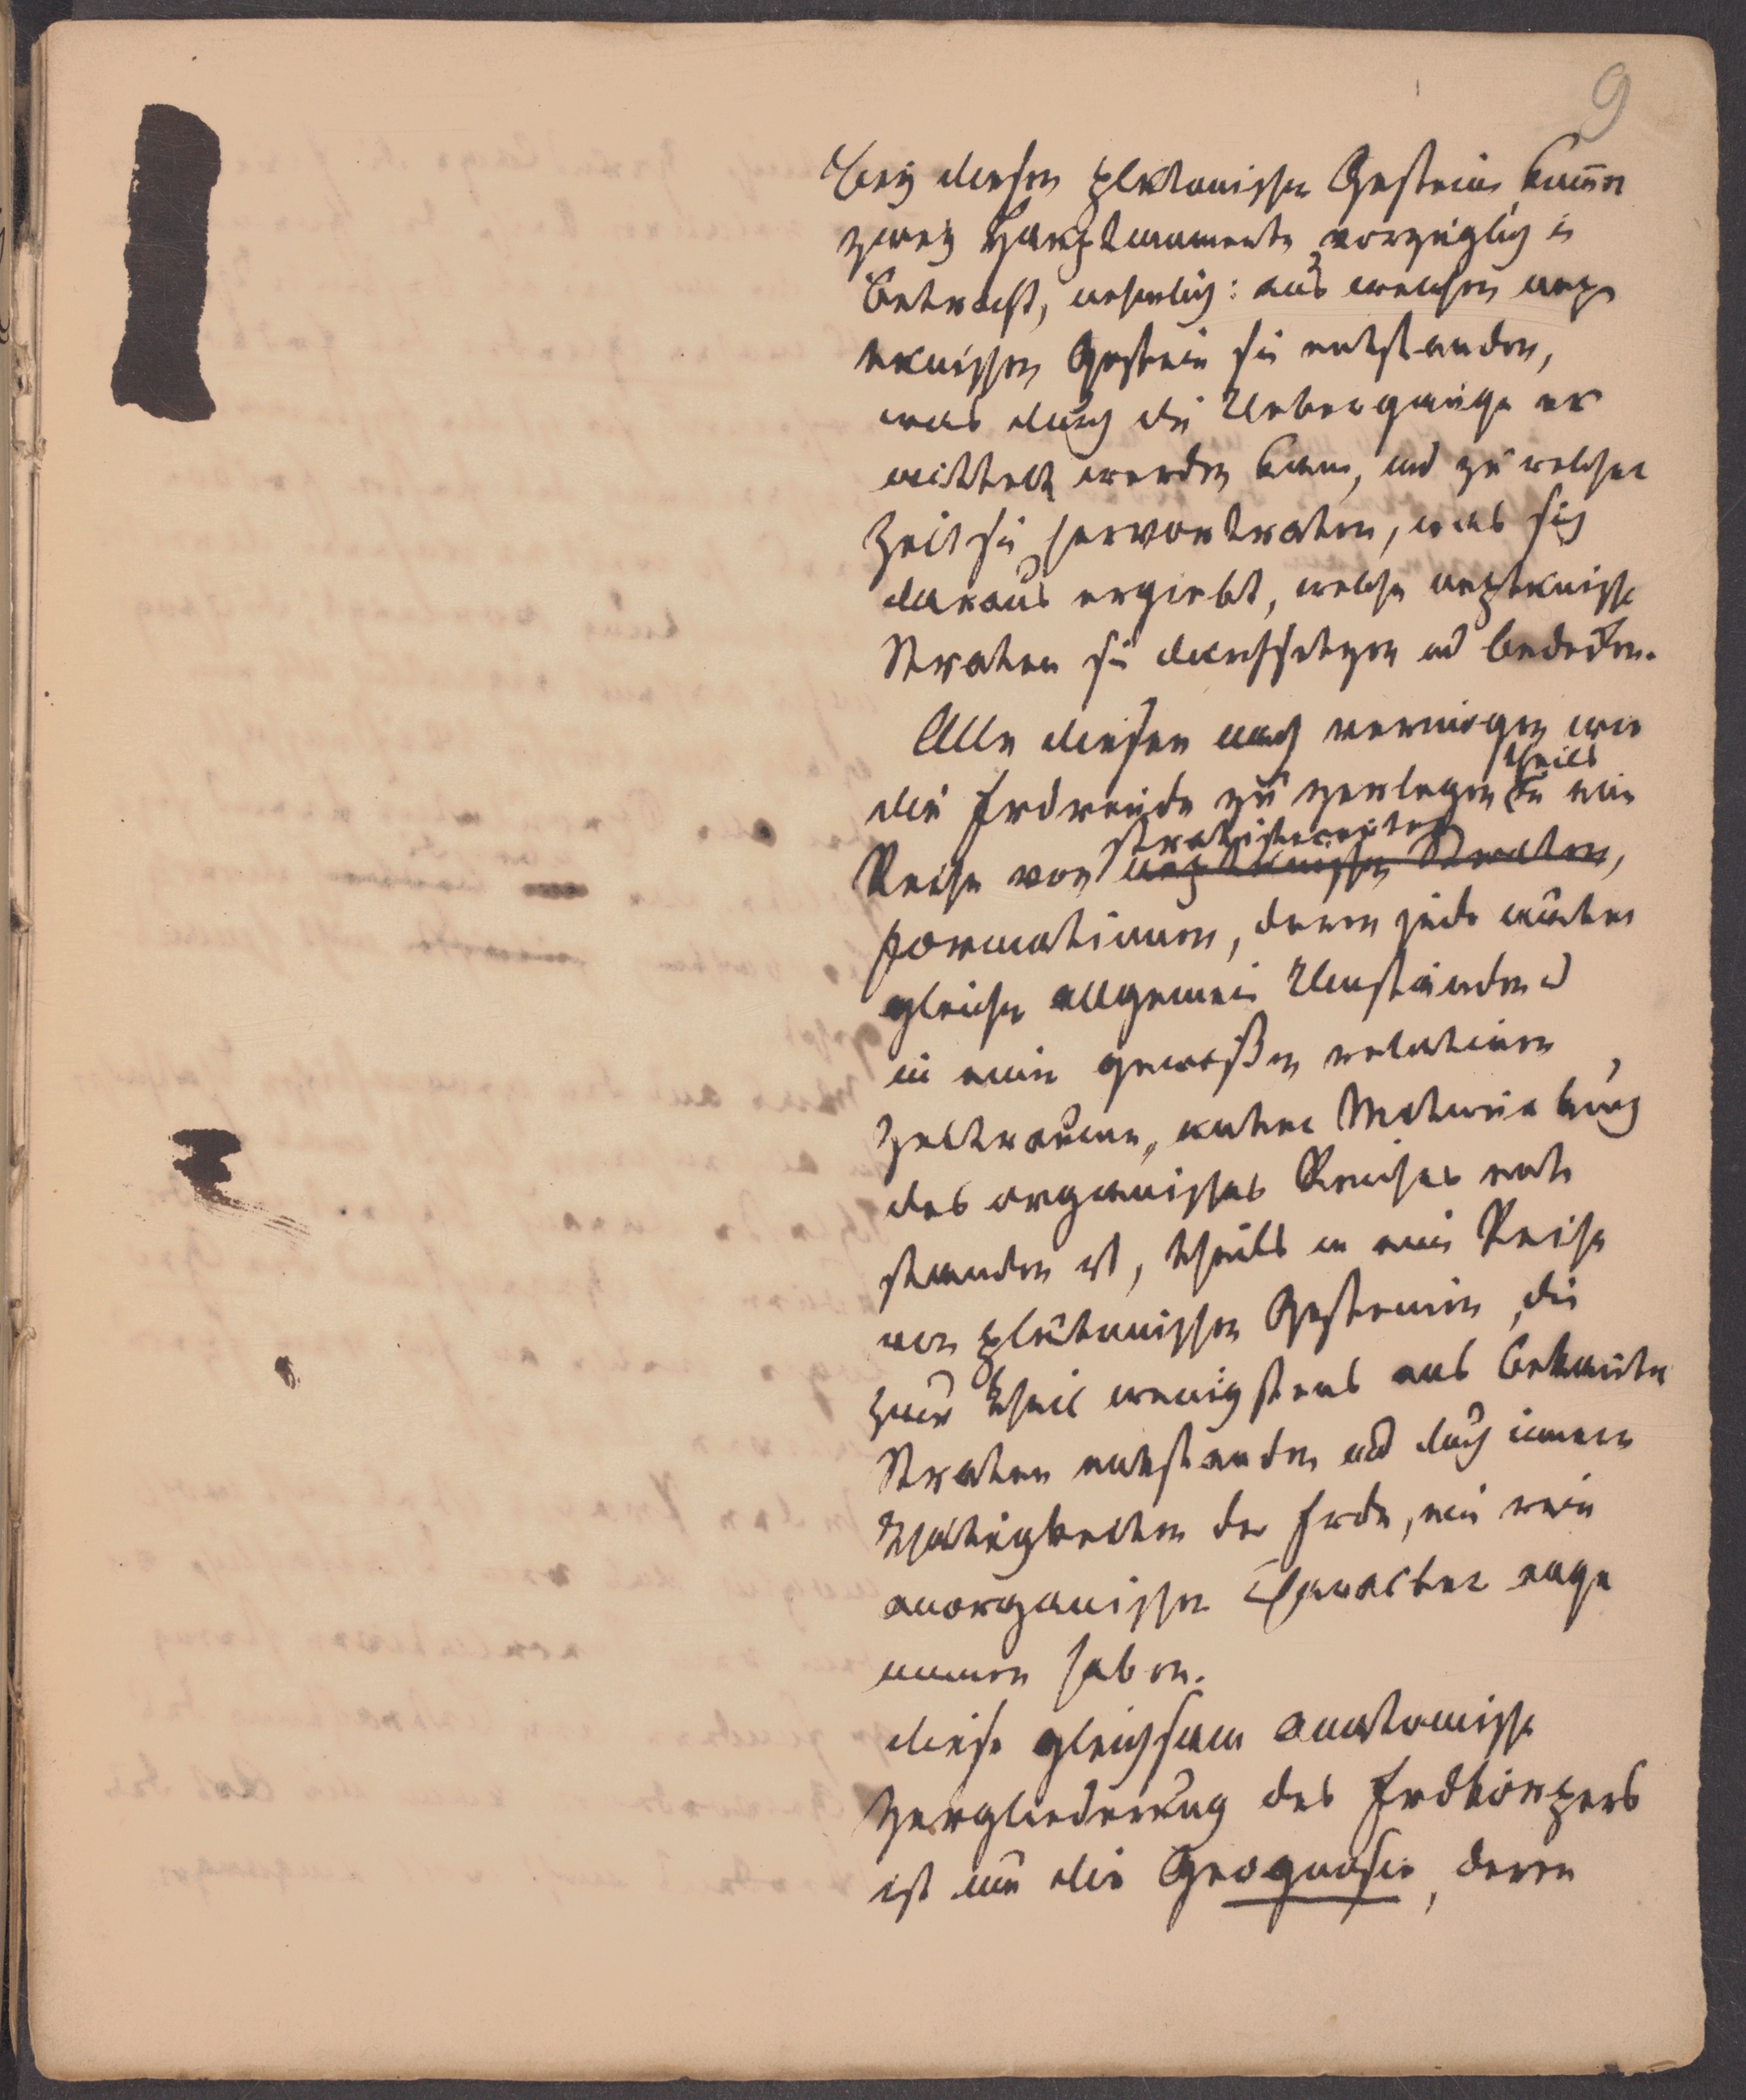 9
Bey diesen plutonischen Gesteinen kom̅en
zwey Hauptmomente vorzüglich in
Betracht, nehmlich: aus welchen nep
tunischen Gestein sie entstanden,
was durch die Uebergänge er
mittelt werden kann, und zu welcher
Zeit sie hervortraten, was sich
daraus ergiebt, welche neptunische
Straten sie durchsetzen und bedecken.
Alle diesem nach vermögen wir
die Erdrinde zu zerlegen theils in eine
Reihe von stratificirten neptunischen Straten,
formationen, deren jede unter
gleichen allgemein Umständen
in einem gewissen relativen
Zeitraume, unter Mitwirkung
des organischen Reiches ent
standen ist, theils in eine Reihe
von plutonischen Gesteinen, die
zum Theil wenigstens aus bekannten
Straten entstanden und durch innere
Thätigkeiten der Erde, ein rein
anorganischen Charakter ange
nommen haben.
diese gleichsam anatomische
Zergliederung des Erdkörpers
ist nun die Geognosie, deren